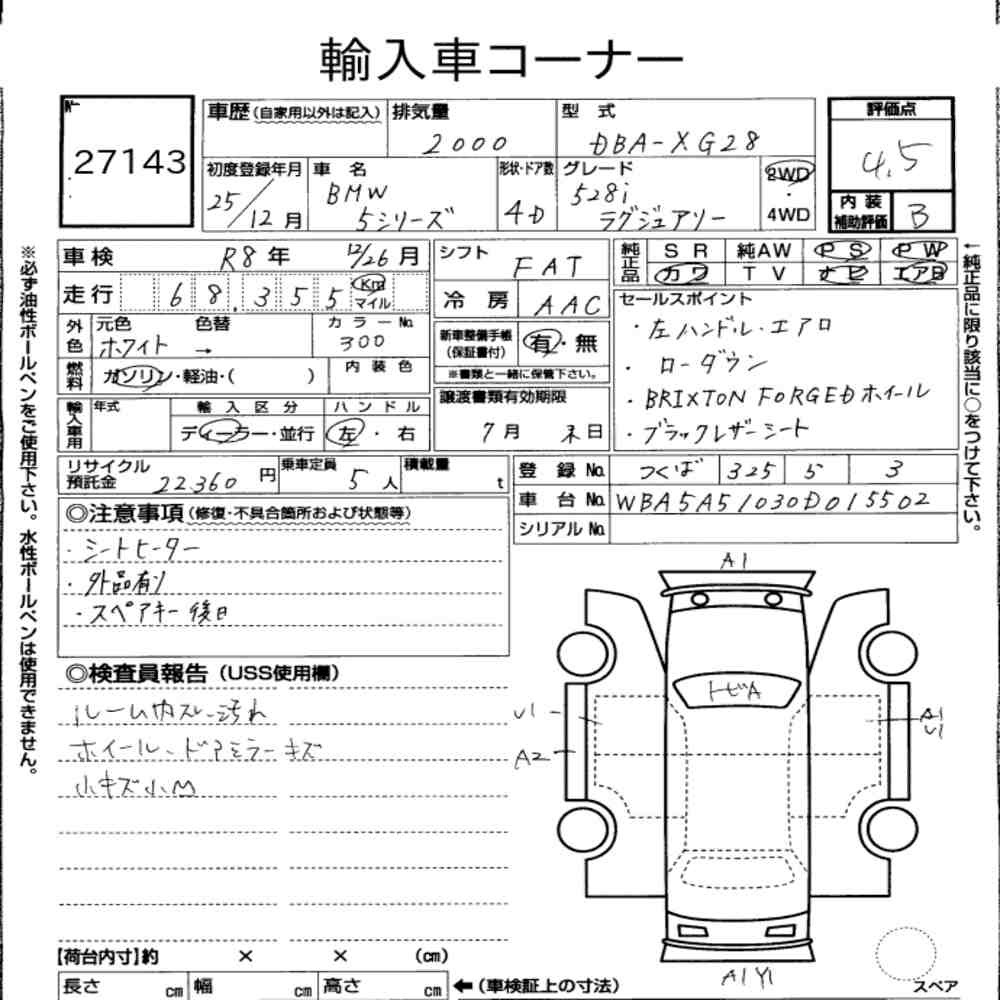 輸入車コーナー
27143
車歴(自家用以外は記入)
排気量
2000
型 式
DBA-XG28
評価点
4.5
初度登録年月
25/12月
車 名
BMW
5シリーズ
形状・ドア数
4D
グレード
528i
ラグジュアリー
2WD
・
4WD
内 装
補助評価
B
車検
R8年 12/26月
シフト
FAT
純正品
SR 純AW PS PW
カワ TV ナビ エアB
走行
68,355
Km
マイル
冷 房
AAC
セールスポイント
・左ハンドル・エアロ
・ローダウン
・BRIXTON FORGEDホイール
・ブラックレザーシート
外色
元色 色替
ホワイト →
カラーNo.
300
新車整備手帳
(保証書付)
有・無
※書類と一緒に保管下さい。
燃料
ガソリン・軽油・( )
内 装 色
譲渡書類有効期限
7月 末日
輸入車用
年式
輸 入 区 分
ディーラー・並行
ハ ン ド ル
左 ・ 右
リサイクル
預託金
22360円
乗車定員
5人
積載量
t
登 録 No.
つくば 325 5 3
車 台 No.
WBA5A51030D015502
シリアル No.
◎注意事項(修復・不具合箇所および状態等)
・シートヒーター
・外品有り
・スペアキー後日
◎検査員報告(USS使用欄)
ルーム内スレ・汚れ
ホイール、ドアミラーキズ
小キズ小M
A1
トビA
U1
A2
A1
U1
A1 Y1
スペア
【荷台内寸】約 × × (cm)
長さ cm 幅 cm 高さ cm ←(車検証上の寸法)
※必ず油性ボールペンをご使用下さい。水性ボールペンは使用できません。
←純正品に限り該当に○をつけて下さい。